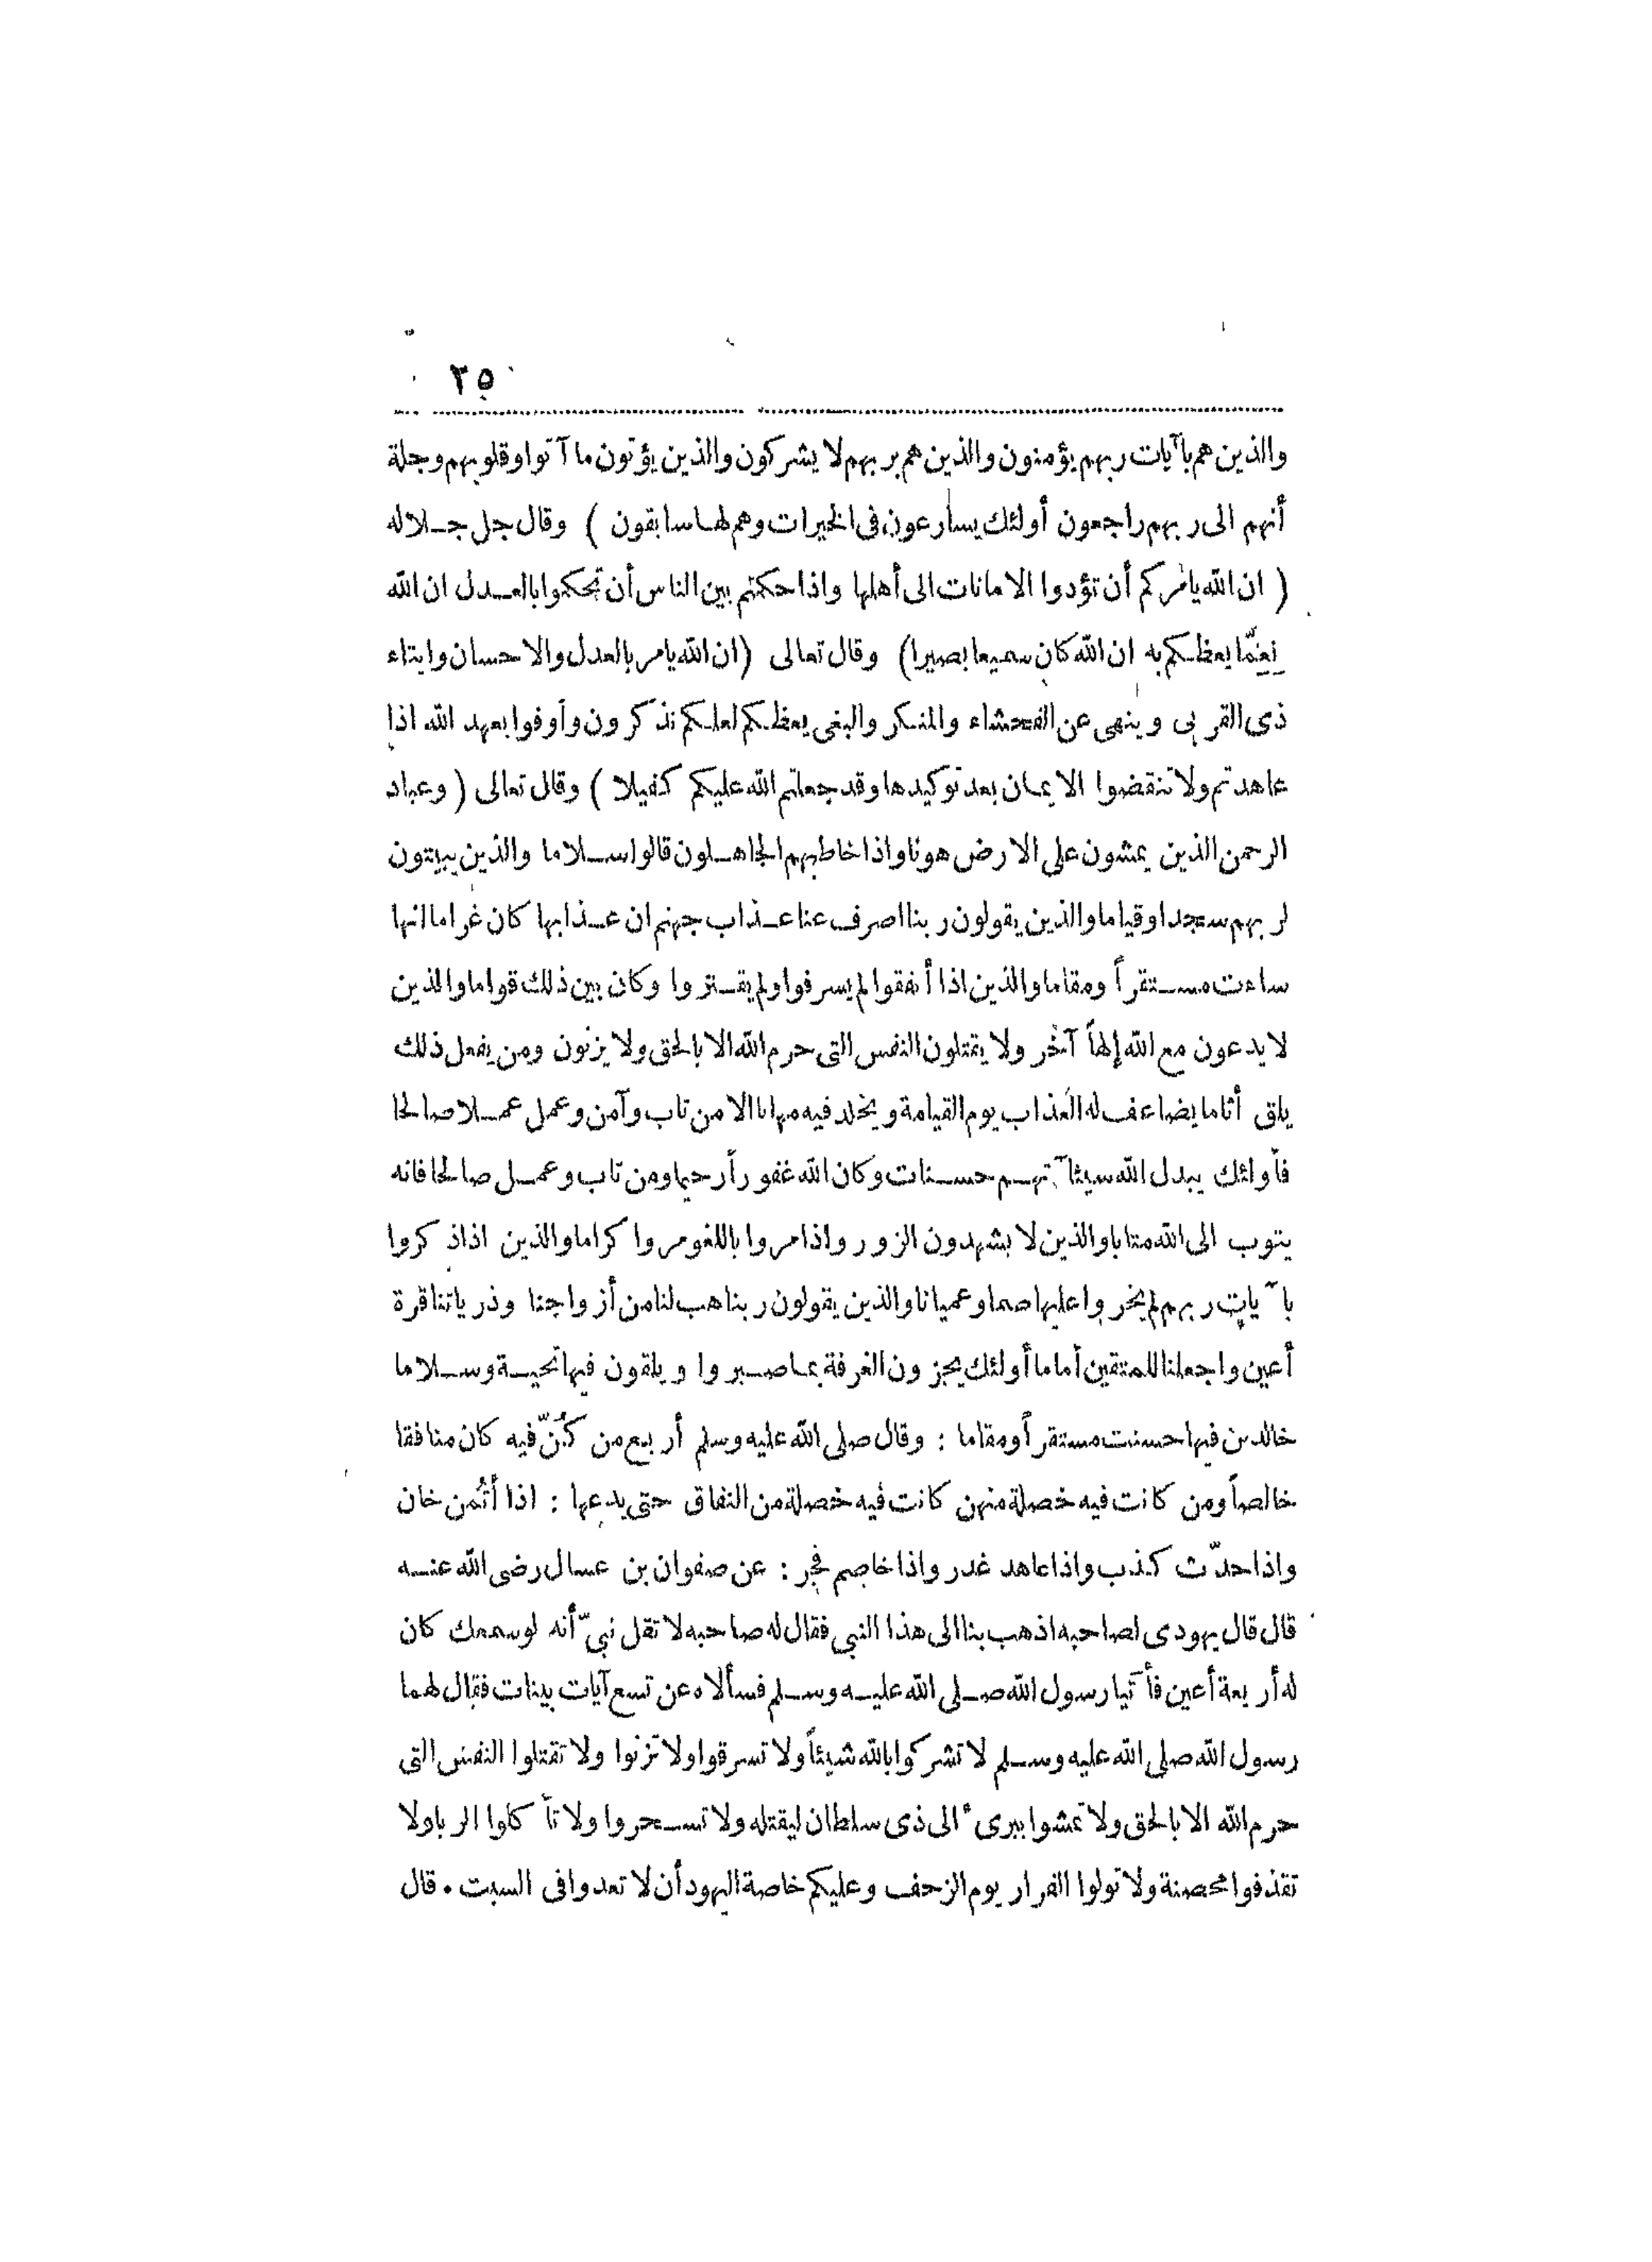 ٣٥
والذين هم بآيات ربهم يؤمنون والذين هم بربهم لا يشركون والذين يؤتون ما آتوا وقلوبهم وجلة
أنهم الى ربهم راجعون أولئك يسارعون فى الخيرات وهم لها سابقون ) وقال جل جلاله
( ان الله يامركم أن تؤدوا الامانات الى أهلها واذا حكمتم بين الناس أن تحكموا بالعدل ان الله
نِعِمَّا يعظكم به ان الله كان سميعا بصيرا) وقال تعالى (ان الله يامر بالعدل والاحسان وايتاء
ذى القربى وينهى عن الفحشاء والمنكر والبغى يعظكم لعلكم تذكرون وأوفوا بعهد الله اذا
عاهدتم ولا تنقضوا الايمان بعد توكيدها وقد جعلتم الله عليكم كفيلا ) وقال تعالى ( وعباد
الرحمن الذين يمشون على الارض هونا واذا خاطبهم الجاهلون قالوا سلاما والذين يبيتون
لربهم سجدا وقياما والذين يقولون ربنا اصرف عنا عذاب جهنم ان عذابها كان غراما انها
ساءت مستقراً ومقاما والذين اذا أنفقوا لم يسرفوا ولم يقتروا وكان بين ذلك قواما والذين
لا يدعون مع الله إلهاً آخر ولا يقتلون النفس التى حرم الله الا بالحق ولا يزنون ومن يفعل ذلك
يلق أثاما يضاعف له العذاب يوم القيامة ويخلد فيه مهانا الا من تاب وآمن وعمل عملا صالحا
فأولئك يبدل الله سيئآتهم حسنات وكان الله غفوراً رحيما ومن تاب وعمل صالحا فانه
يتوب الى الله متابا والذين لا يشهدون الزور واذا مروا باللغو مروا كراما والذين اذا ذكروا
بآيات ربهم لم يخروا عليها صما وعميانا والذين يقولون ربنا هب لنا من أزواجنا وذرياتنا قرة
أعين واجعلنا للمتقين أماما أولئك يجزون الغرفة بما صبروا ويلقون فيها تحية وسلاما
خالدين فيها حسنت مستقراً ومقاما : وقال صلى الله عليه وسلم أربع من كُنّ فيه كان منافقا
خالصاً ومن كانت فيه خصلة منهن كانت فيه خصلة من النفاق حتى يدعها : اذا أتُمن خان
واذا حدّث كذب واذا عاهد غدر واذا خاصم فجر : عن صفوان بن عسال رضى الله عنه
قال قال يهودى لصاحبه اذهب بنا الى هذا النبى فقال له صاحبه لا تقل نبىّ أنه لو سمعك كان
له أربعة أعين فأتيا رسول الله صلى الله عليه وسلم فسألاه عن تسع آيات بينات فقال لهما
رسول الله صلى الله عليه وسلم لا تشركوا بالله شيئاً ولا تسرقوا ولا تزنوا ولا تقتلوا النفس التى
حرم الله الا بالحق ولا تمشوا ببرىء الى ذى سلطان ليقتله ولا تسحروا ولا تأكلوا الربا ولا
تقذفوا محصنة ولا تولوا الفرار يوم الزحف وعليكم خاصة اليهود أن لا تعدوا فى السبت . قال